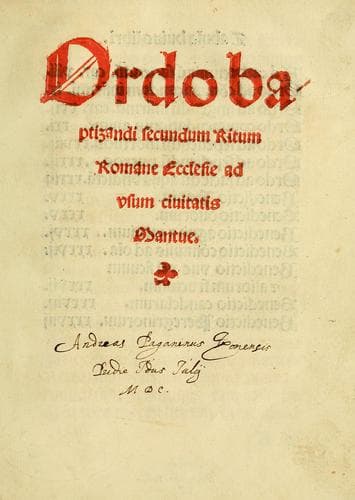 Ordoba
ptizandi secundum Ritum
Romane Ecclesie ad
vsum ciuitatis
Mantue.
Andreas Paganenus
Pridie Idus Julij
MDC.